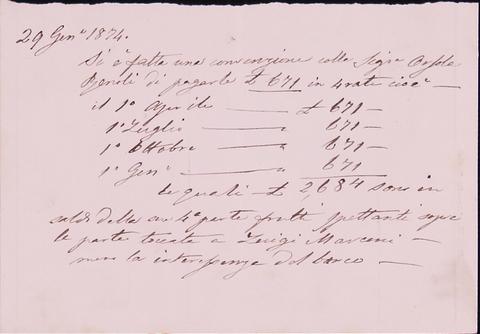 29 Genº 1874.
Si è fatta una convenzione colla Sigra Orsola
di pagarle £ 671 in 4 rate cioè —
il 1º Aprile — £ 671 —
1º Luglio — " 671 —
1º Ottobre — " 671 —
1º Genº — " 671
le quali — £ 2,684 sono in
saldo della sua 4ª parte frutti spettanti sopra
le parte toccate a Luigi Marconi —
meno la interessenza del banco —